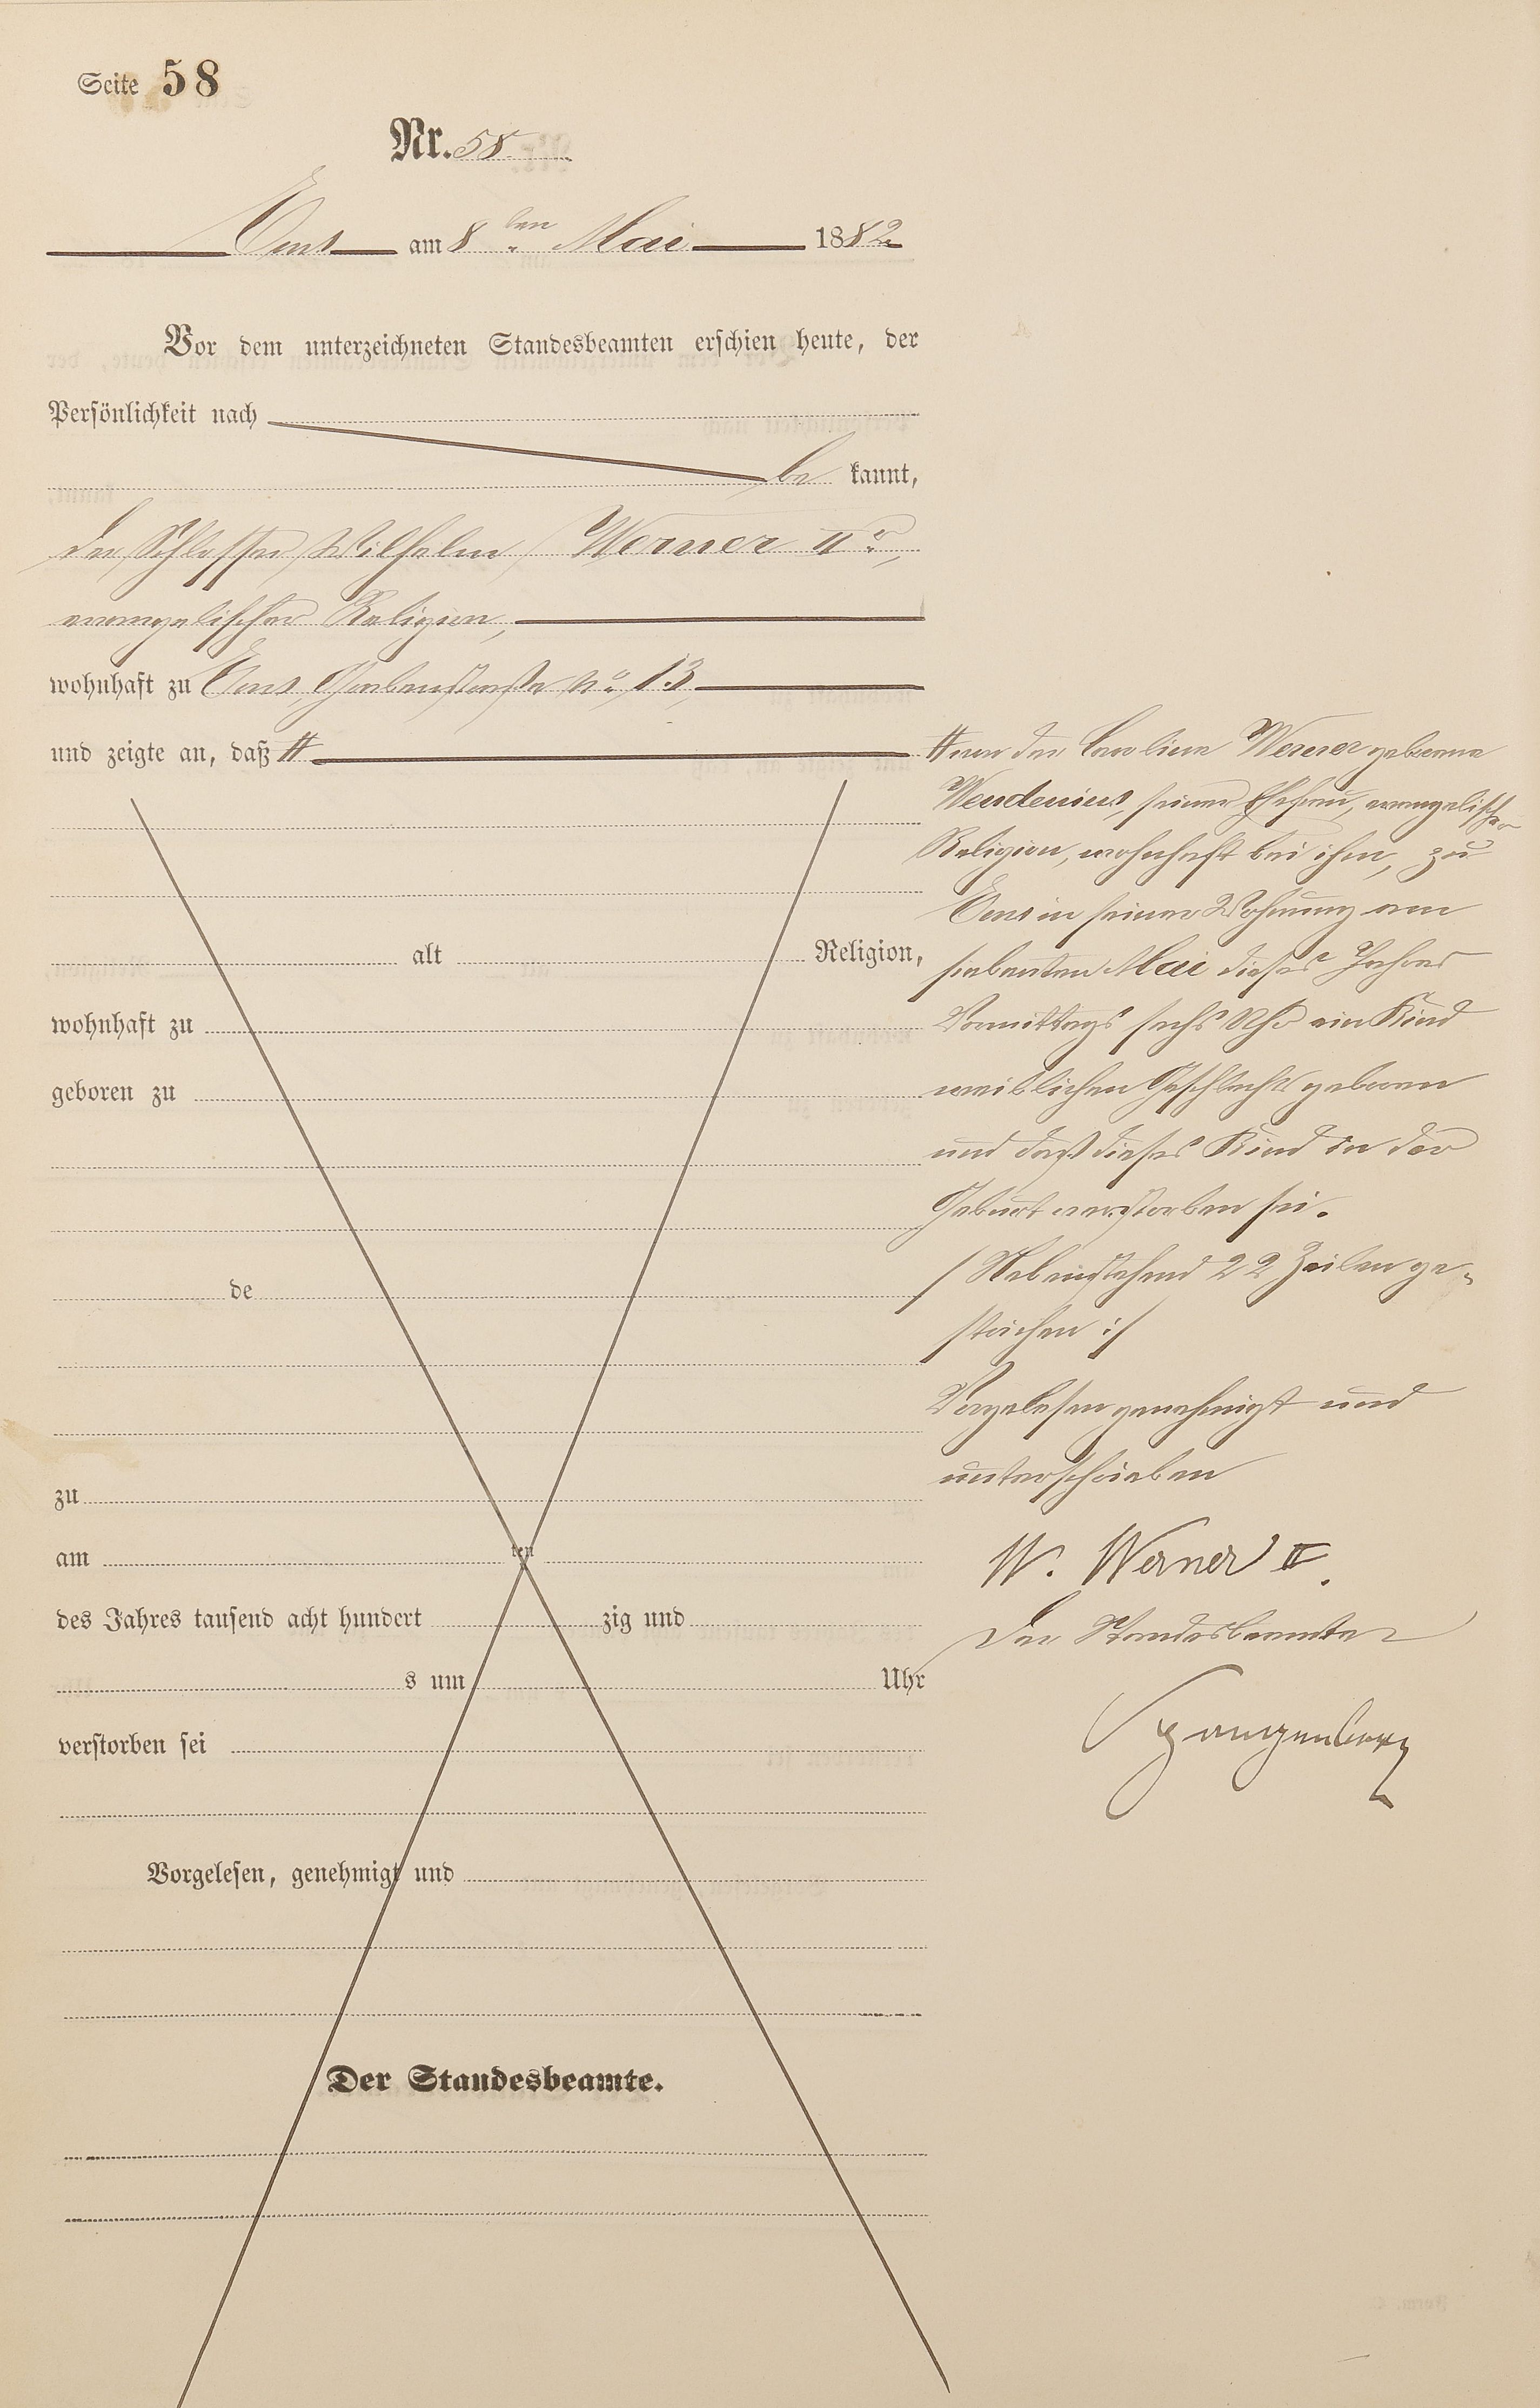 Seite 58
Nr. 58
Ems am 8ten Mai 1882
Vor dem unterzeichneten Standesbeamten erschien heute, der
Persönlichkeit nach
be kannt,
der Schlosser Wilhelm Werner IIr,
evangelischer Religion,
wohnhaft zu Ems, Grabenstraße No 13,
und zeigte an, daß #
# von der Carolina Werner geborene
Wendenius, seiner Ehefrau, evangelischer
Religion, wohnhaft bei ihm, zu
Ems in seiner Wohnung am
siebenten Mai dieses Jahres
Vormittags sechs Uhr ein Kind
weiblichen Geschlechts geboren
und daß dieses Kind in der
Geburt verstorben sei.
/ Nebenstehend 22 Zeilen ge-
strichen :/
Vorgelesen genehmigt und
unterschrieben
W. Werner II.
Der Standesbeamte
Spangenberg
alt Religion,
wohnhaft zu
geboren zu
de
zu
am ten
des Jahres tausend acht hundert zig und
s um Uhr
verstorben sei
Vorgelesen, genehmigt und
Der Standesbeamte.